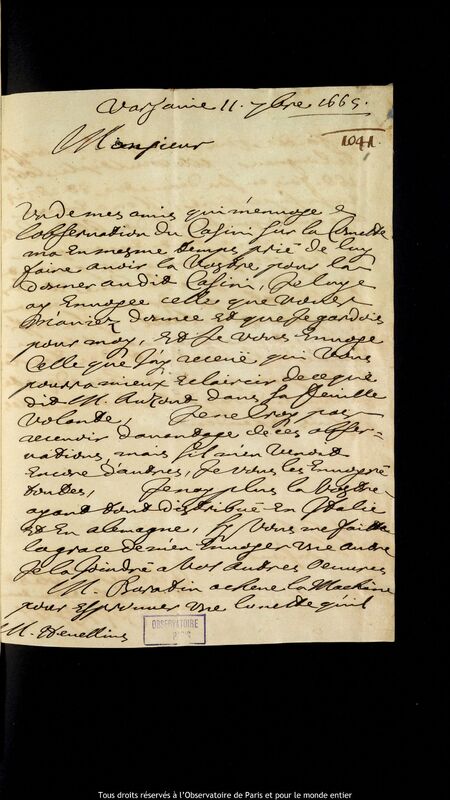 Varsavie 11. 7bre 1665.
1041.
Monsieur
Un de mes amis qui m'envoye
l'observation du Casini sur la Comette
ma En mesme temps prié de luy
faire avoir la Vostre pour la
donner audit Casini, Je luy
ay Envoyée celle que vous
m'aviez donnée Et que Je gardois
pour moy, Et Je vous Envoye
Celle que J'ay receuë qui Vous
pourra mieux Eclaircir de ce que
dit M. Auzout dans sa feuille
Volante. Je ne croy pas
recevoir davantage de ces obser-
vations, mais s'il m'en venoit
Encore d'autres, Je vous les Envoyeré
toutes, Je n'ay plus la Vostre
ayant tout distribué En Italie
Et En alemagne, Si Vous me faites
la grace de m'en Envoyer Une autre
Je la Joindré a Vos autres Oeuvres
M. Buratin acheve la Machine
pour Esprouver Une lunette qu'il
M. Hevellius
OBSERVATOIRE
PARIS
Tous droits réservés à l'Observatoire de Paris et pour le monde entier